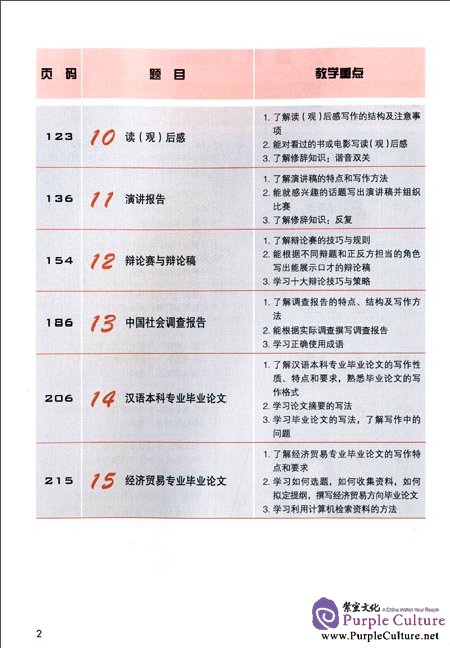 页 码 题 目 教学重点
123 10 读（观）后感
1. 了解读（观）后感写作的结构及注意事
项
2. 能对看过的书或电影写读（观）后感
3. 了解修辞知识：谐音双关
136 11 演讲报告
1. 了解演讲稿的特点和写作方法
2. 能就感兴趣的话题写出演讲稿并组织
比赛
3. 了解修辞知识：反复
154 12 辩论赛与辩论稿
1. 了解辩论赛的技巧与规则
2. 能根据不同辩题和正反方担当的角色
写出能展示口才的辩论稿
3. 学习十大辩论技巧与策略
186 13 中国社会调查报告
1. 了解调查报告的特点、结构及写作方
法
2. 能根据实际调查撰写调查报告
3. 学习正确使用成语
206 14 汉语本科专业毕业论文
1. 了解汉语本科专业毕业论文的写作性
质、特点和要求，熟悉毕业论文的写
作格式
2. 学习论文摘要的写法
3. 学习毕业论文的写法，了解写作中的
问题
215 15 经济贸易专业毕业论文
1. 了解经济贸易专业毕业论文的写作特
点和要求
2. 学习如何选题，如何收集资料，如何
拟定提纲，撰写经济贸易方向毕业论文
3. 学习利用计算机检索资料的方法
2
紫室文化 A China Within Your Reach
Purple Culture
www.PurpleCulture.net